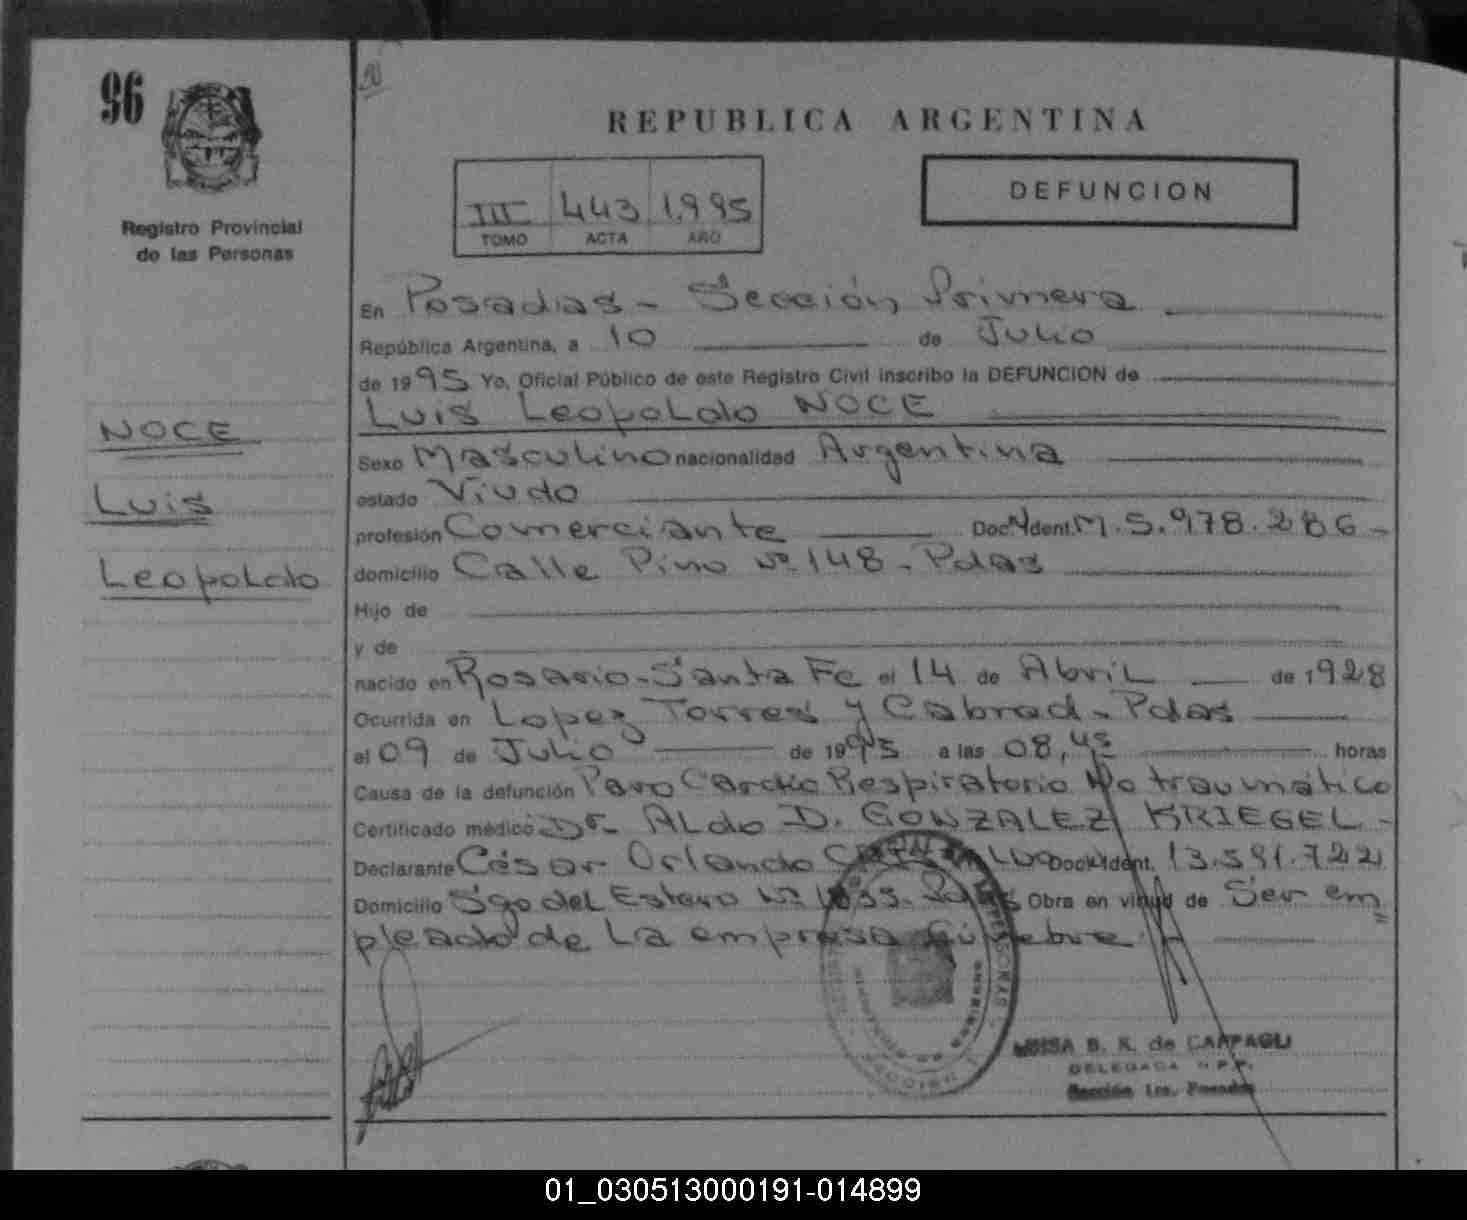 96
REPUBLICA ARGENTINA
Registro Provincial
de las Personas
III 443 1.995
TOMO ACTA AÑO
DEFUNCION
En Posadas - Sección Primera
República Argentina, a 10 de Julio
de 1995 Yo, Oficial Público de este Registro Civil inscribo la DEFUNCION de
Luis Leopoldo NOCE
NOCE
Luis
Leopoldo
Sexo Masculino nacionalidad Argentina
estado Viudo
profesión Comerciante Doc. Ident. M. 5.978.286 -
domicilio Calle Pino Nº 148 - Pdas
Hijo de
y de
nacido en Rosario - Santa Fe el 14 de Abril de 1928
Ocurrida en Lopez Torres y Cabred - Pdas
el 09 de Julio de 1995 a las 08,45 horas
Causa de la defunción Paro Cardio Respiratorio No traumático
Certificado médico Dr. Aldo D. GONZALEZ KRIEGEL -
Declarante César Orlando Doc. Ident. 13.591.722
Domicilio Sgo del Estero Nº Obra en virtud de Ser em
pleado de La empresa
B. K. de CAPPAGLI
DELEGADA R.P.P.
Sección 1ra. Posadas
01_030513000191-014899